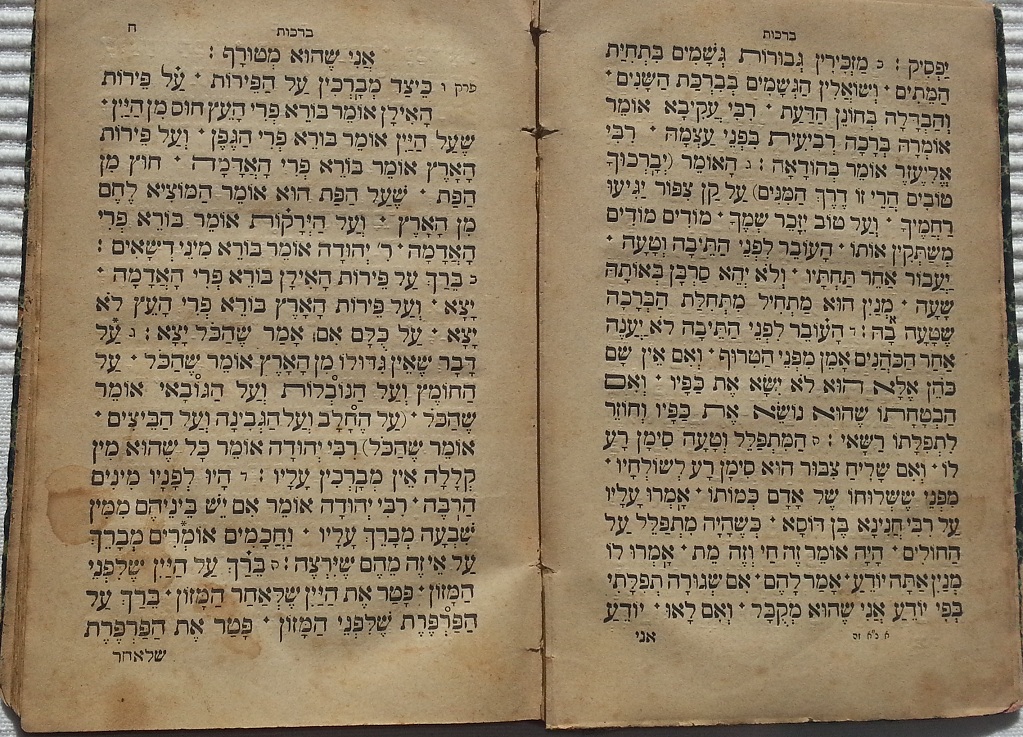 ברכות
יַפְסִיק : ב מַזְכִּירִין גְּבוּרוֹת גְּשָׁמִים בִּתְחִיַּת
הַמֵּתִים · וְשׁוֹאֲלִין הַגְּשָׁמִים בְּבִרְכַּת הַשָּׁנִים ·
וְהַבְדָּלָה בְּחוֹנֵן הַדָּעַת · רַבִּי עֲקִיבָא אוֹמֵר
אוֹמְרָהּ בְּרָכָה רְבִיעִית בִּפְנֵי עַצְמָהּ · רַבִּי
אֱלִיעֶזֶר אוֹמֵר בְּהוֹדָאָה : ג הָאוֹמֵר (יְבָרְכוּךָ
טוֹבִים הֲרֵי זוֹ דֶּרֶךְ הַמִּנִּים) עַל קַן צִפּוֹר יַגִּיעוּ
רַחֲמֶיךָ · וְעַל טוֹב יִזָּכֵר שְׁמֶךָ · מוֹדִים מוֹדִים
מְשַׁתְּקִין אוֹתוֹ · הָעוֹבֵר לִפְנֵי הַתֵּיבָה וְטָעָה ·
יַעֲבוֹר אַחֵר תַּחְתָּיו · וְלֹא יְהֵא סַרְבָן בְּאוֹתָהּ
שָׁעָה · מִנַּיִן הוּא מַתְחִיל מִתְּחִלַּת הַבְּרָכָה
שֶׁטָּעָה בָּהּ : ד הָעוֹבֵר לִפְנֵי הַתֵּיבָה לֹא יַעֲנֶה
אַחַר הַכֹּהֲנִים אָמֵן מִפְּנֵי הַטֵּרוּף · וְאִם אֵין שָׁם
כֹּהֵן אֶלָּא הוּא לֹא יִשָּׂא אֶת כַּפָּיו · וְאִם
הַבְטָחָתוֹ שֶׁהוּא נוֹשֵׂא אֶת כַּפָּיו וְחוֹזֵר
לִתְפִלָּתוֹ רַשָּׁאי : ה הַמִּתְפַּלֵּל וְטָעָה סִימַן רַע
לוֹ · וְאִם שְׁלִיחַ צִבּוּר הוּא סִימַן רַע לְשׁוֹלְחָיו ·
מִפְּנֵי שֶׁשְּׁלוּחוֹ שֶׁל אָדָם כְּמוֹתוֹ · אָמְרוּ עָלָיו
עַל רַבִּי חֲנִינָא בֶּן דּוֹסָא · כְּשֶׁהָיָה מִתְפַּלֵּל עַל
הַחוֹלִים · הָיָה אוֹמֵר זֶה חַי וְזֶה מֵת · אָמְרוּ לוֹ
מִנַּיִן אַתָּה יוֹדֵעַ · אָמַר לָהֶם · אִם שְׁגוּרָה תְפִלָּתִי
בְּפִי יוֹדֵעַ אֲנִי שֶׁהוּא מְקֻבָּל · וְאִם לָאו · יוֹדֵעַ
אני
ברכות ח
אֲנִי שֶׁהוּא מְטוֹרָף :
פרק ו כֵּיצַד מְבָרְכִין עַל הַפֵּירוֹת · עַל פֵּירוֹת
הָאִילָן אוֹמֵר בּוֹרֵא פְּרִי הָעֵץ חוּץ מִן הַיַּיִן ·
שֶׁעַל הַיַּיִן אוֹמֵר בּוֹרֵא פְּרִי הַגֶּפֶן · וְעַל פֵּירוֹת
הָאָרֶץ אוֹמֵר בּוֹרֵא פְּרִי הָאֲדָמָה · חוּץ מִן
הַפַּת · שֶׁעַל הַפַּת הוּא אוֹמֵר הַמּוֹצִיא לֶחֶם
מִן הָאָרֶץ · וְעַל הַיְרָקוֹת אוֹמֵר בּוֹרֵא פְּרִי
הָאֲדָמָה · ר' יְהוּדָה אוֹמֵר בּוֹרֵא מִינֵי דְשָׁאִים :
ב בֵּרַךְ עַל פֵּירוֹת הָאִילָן בּוֹרֵא פְּרִי הָאֲדָמָה ·
יָצָא · וְעַל פֵּירוֹת הָאָרֶץ בּוֹרֵא פְּרִי הָעֵץ לֹא
יָצָא · עַל כֻּלָּם אִם אָמַר שֶׁהַכֹּל יָצָא : ג עַל
דָּבָר שֶׁאֵין גִּדּוּלוֹ מִן הָאָרֶץ אוֹמֵר שֶׁהַכֹּל · עַל
הַחוֹמֶץ וְעַל הַנּוֹבְלוֹת וְעַל הַגּוֹבַאי אוֹמֵר
שֶׁהַכֹּל · (עַל הֶחָלָב וְעַל הַגְּבִינָה וְעַל הַבֵּיצִים ·
אוֹמֵר שֶׁהַכֹּל) רַבִּי יְהוּדָה אוֹמֵר כָּל שֶׁהוּא מִין
קְלָלָה אֵין מְבָרְכִין עָלָיו : ד הָיוּ לְפָנָיו מִינִים
הַרְבֵּה · רַבִּי יְהוּדָה אוֹמֵר אִם יֵשׁ בֵּינֵיהֶם מִמִּין
שִׁבְעָה מְבָרֵךְ עָלָיו · וַחֲכָמִים אוֹמְרִים מְבָרֵךְ
עַל אֵיזֶה מֵהֶם שֶׁיִּרְצֶה : ה בֵּרַךְ עַל הַיַּיִן שֶׁלִּפְנֵי
הַמָּזוֹן · פָּטַר אֶת הַיַּיִן שֶׁלְּאַחַר הַמָּזוֹן · בֵּרַךְ עַל
הַפַּרְפֶּרֶת שֶׁלִּפְנֵי הַמָּזוֹן · פָּטַר אֶת הַפַּרְפֶּרֶת
שלאחר